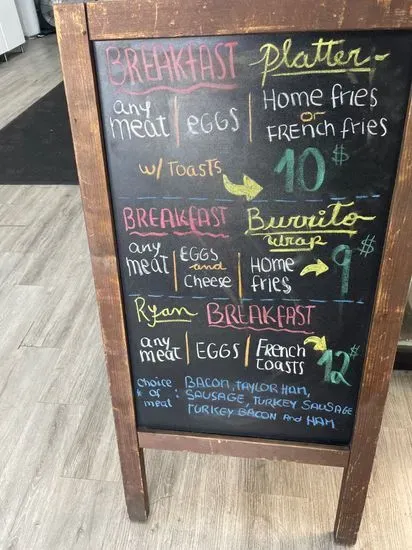 BREAKFAST Platter
any meat | EGGS | Home fries or FRENCH fries
w/ Toasts 10$
BREAKFAST Burrito wrap
any meat | EGGS and Cheese | Home fries 9$
Ryan BREAKFAST
any meat | EGGS | French toasts 12$
choice of meat : BACON, TAYLOR HAM,
SAUSAGE, TURKEY SAUSAGE
TURKEY BACON and HAM